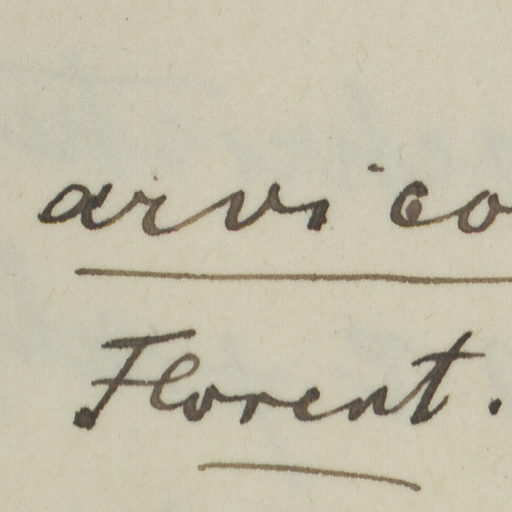 arvico
Florent.